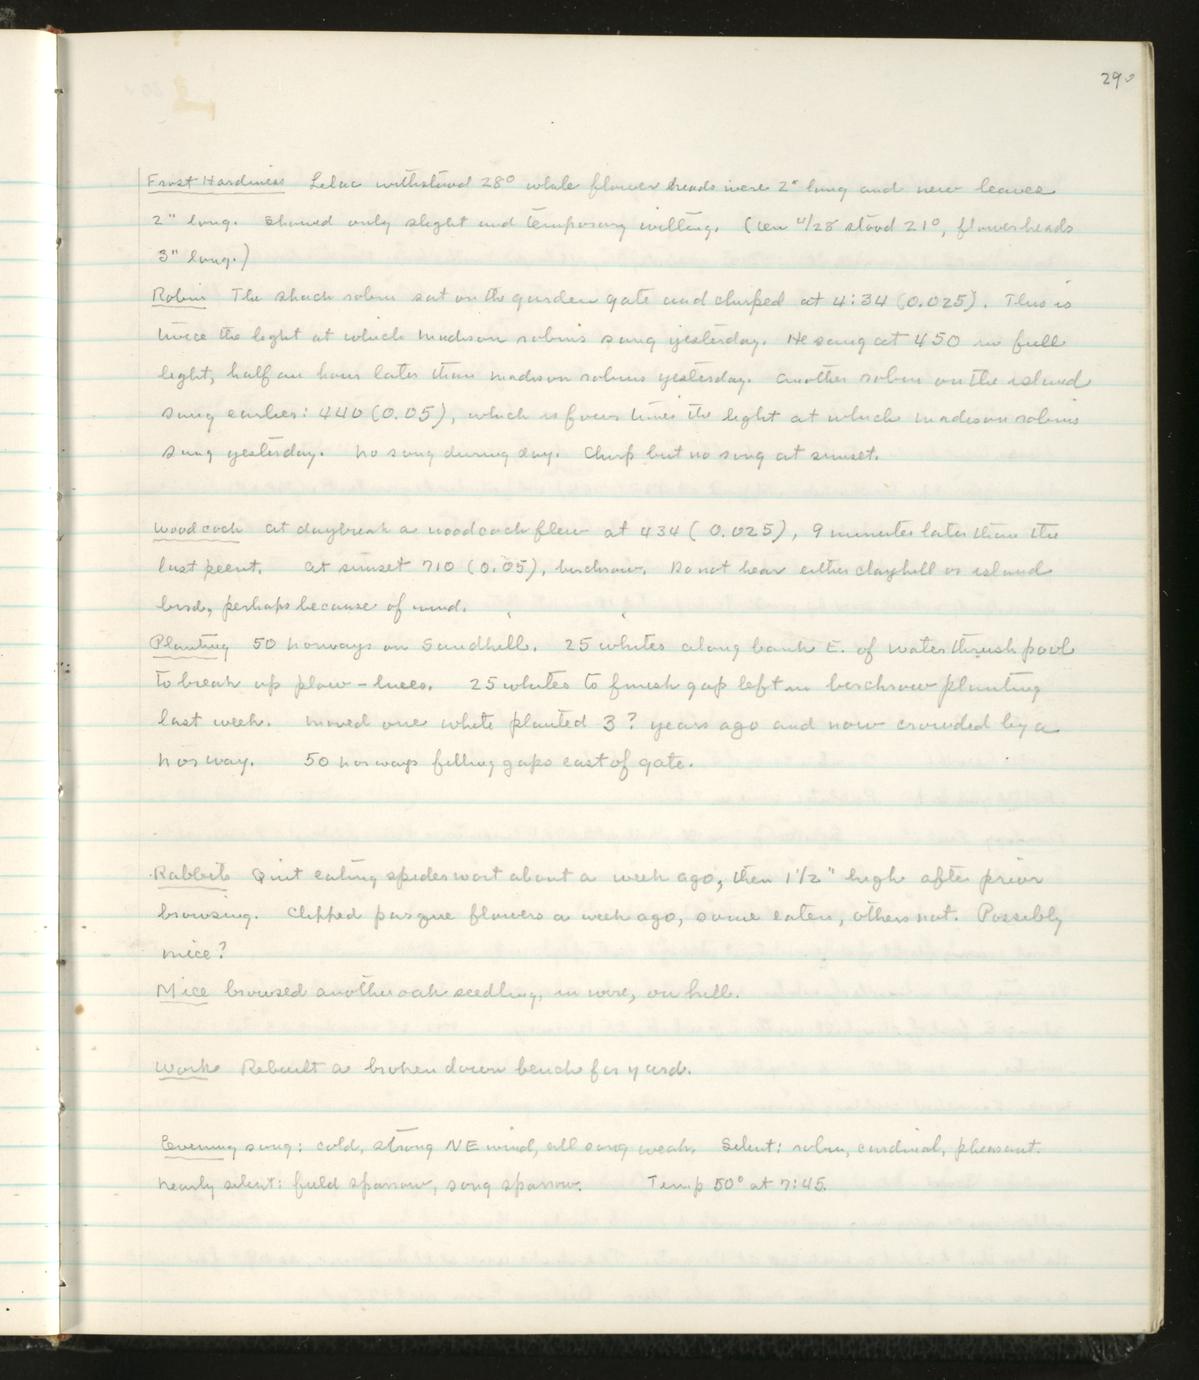 290
Frost Hardiness Lilac withstood 28° while flower heads were 2" long and new leaves
2" long. Showed only slight and temporary wilting. ( 4/28 stood 21°, flowerheads
3" long.)
Robin The shack robin sat on the garden gate and chirped at 4:34 (0.025). This is
twice the light at which Madison robins sang yesterday. He sang at 450 in full
light, half an hour later than Madison robins yesterday. Another robin on the island
sang earlier: 440 (0.05), which is four times the light at which Madison robins
sang yesterday. No song during day. Chirp but no song at sunset.
Woodcock At daybreak a woodcock flew at 434 (0.025), 9 minutes later than the
last peent. At sunset 710 (0.05), birchrow. Do not hear either clayhill or island
bird, perhaps because of wind.
Planting 50 norways on Sandhill. 25 whites along bank E. of waterthrush pool
to break up plow-lines. 25 whites to finish gap left in birchrow planting
last week. Moved one white planted 3? years ago and now crowded by a
norway. 50 norways filling gaps east of gate.
Rabbit Quit eating spiderwort about a week ago, then 1 1/2" high after prior
browsing. Clipped pasque flowers a week ago, some eaten, others not. Possibly
mice?
Mice browsed another oak seedling, in wire, on hill.
Work Rebuilt a broken down bench for yard.
Evening song: cold, strong NE wind, all song weak. Silent: robin, cardinal, pheasant.
Nearly silent: field sparrow, song sparrow. Temp 50° at 7:45.